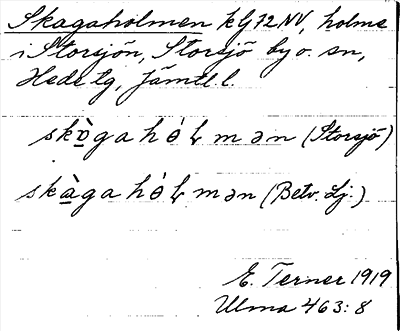 Skagaholmen kG 72 NV, holme
i Storsjön, Storsjö by o. sn,
Hede tg, Jämtl l.
skɒ̀gahɵ́ɫmən (Storsjö)
skàgahɵ́ɫmən (Betv. Lj.)
E. Terner 1919
Ulma 463:8